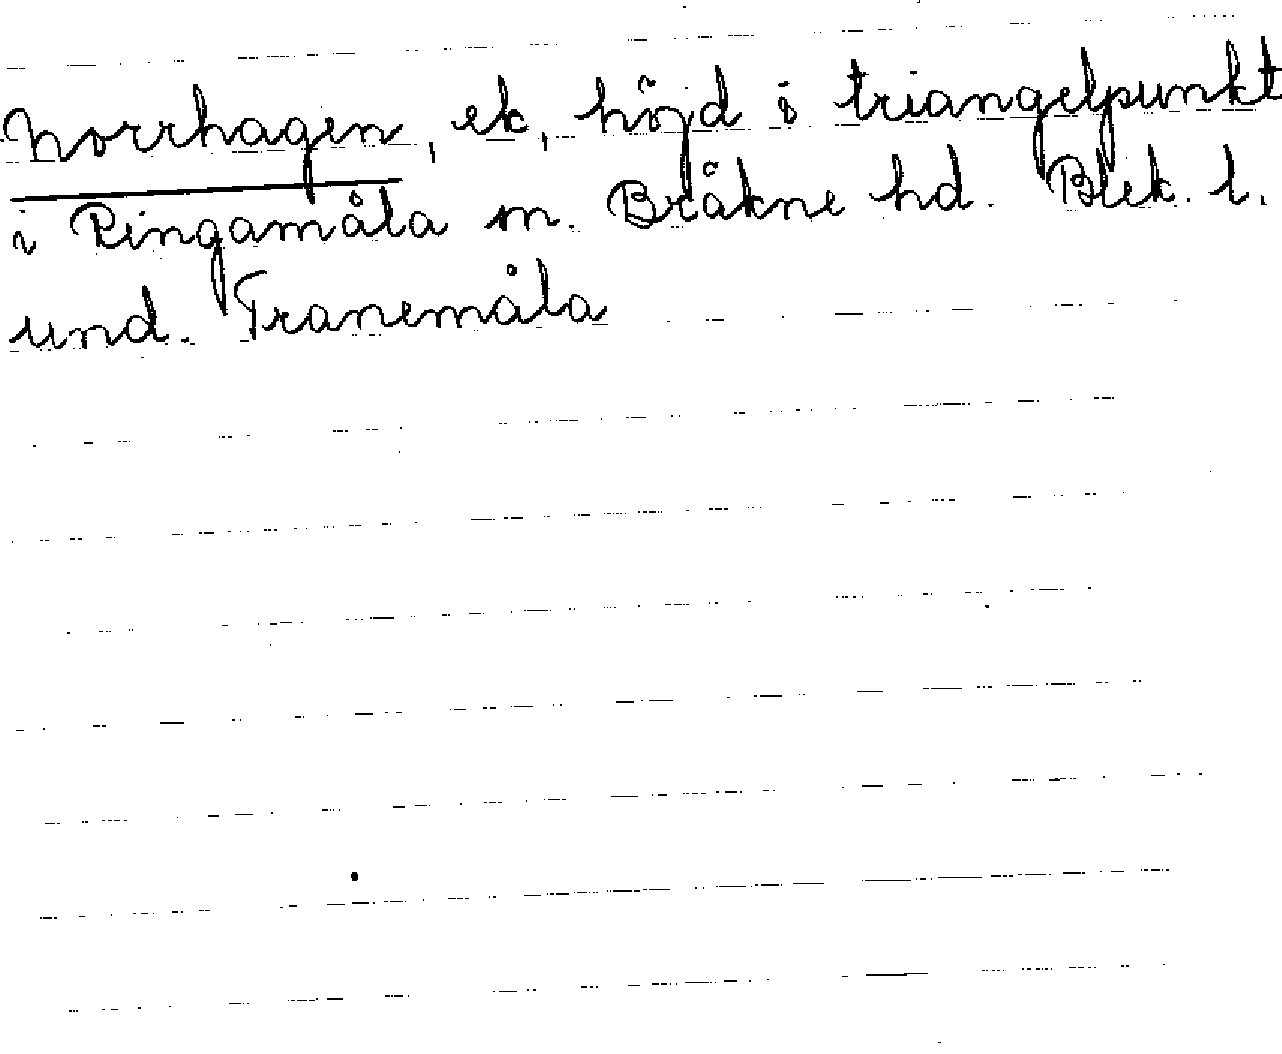 Norrhagen, ek, höjd i triangelpunkt
i Ringamåla sn. Bräkne hd. Blek. l.
und. Tranemåla